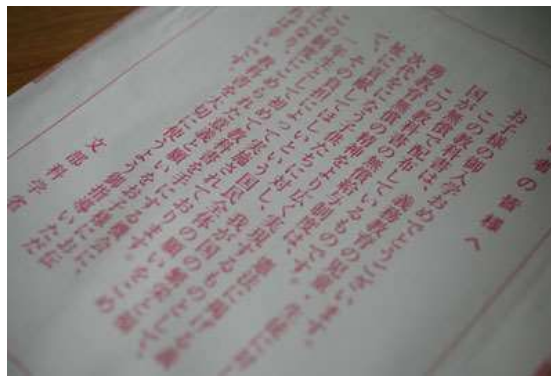 の皆様へ
お子様の御入学おめでとうございます。
この教科書は、義務教育の児童・生徒に対し、
国が無償で配布しているものです。
この教科書の無償給与制度は、憲法に掲げる義
務教育無償の精神をより広く実現するものとして、
次代をになう子供たちに対し、我が国の繁栄と福
祉に貢献してほしいという国民全体の願いをこめ
て、その負担によって実施されております。
一年生として初めて教科書を手にする機会に、
この制度に込められた意義と願いをお子様にお伝
教科書を大切に使うよう御指導いただ
幸いです。
文部科学省